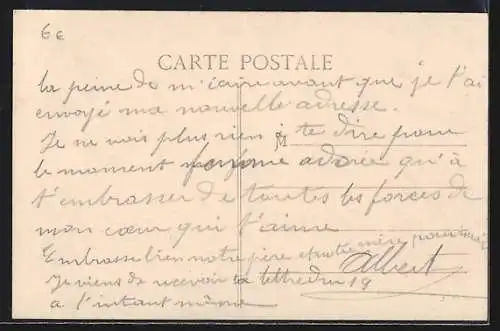 6 E
CARTE POSTALE
la peine de m'écrire avant que je t'ai
envoyé ma nouvelle adresse.
Je ne vois plus rien à te dire pour
M
le moment adorée qu'à
t'embrasser de toutes les forces de
mon cœur qui t'aime
Embrasse bien notre père et notre mère pour moi
Albert
Je viens de recevoir ta lettre du 19
à l'instant même